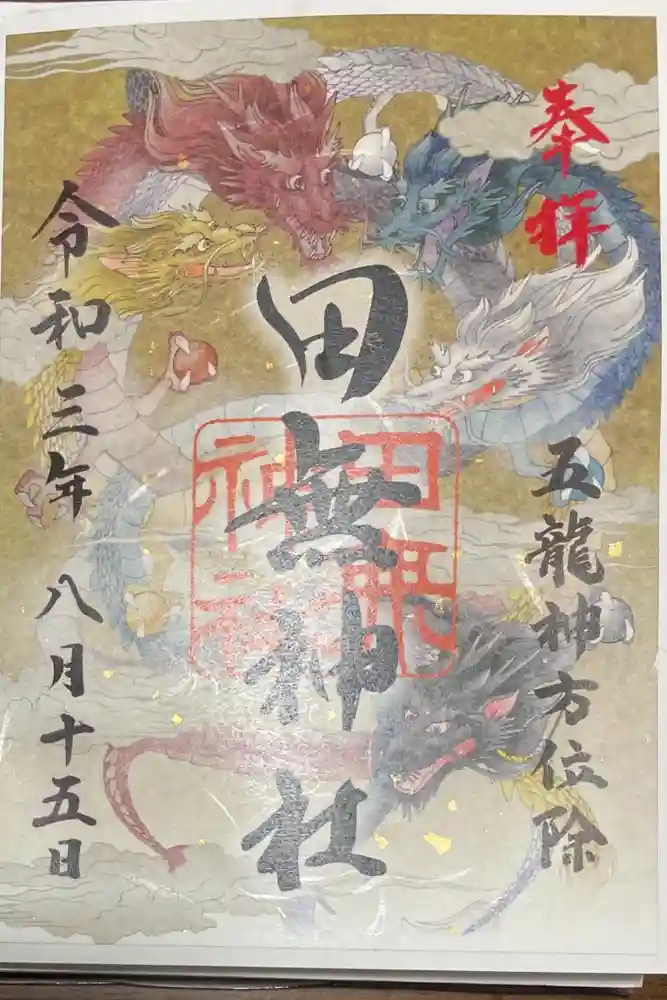 奉拝
五龍神方位除
田無神社
田無
神社
令和三年 八月十五日